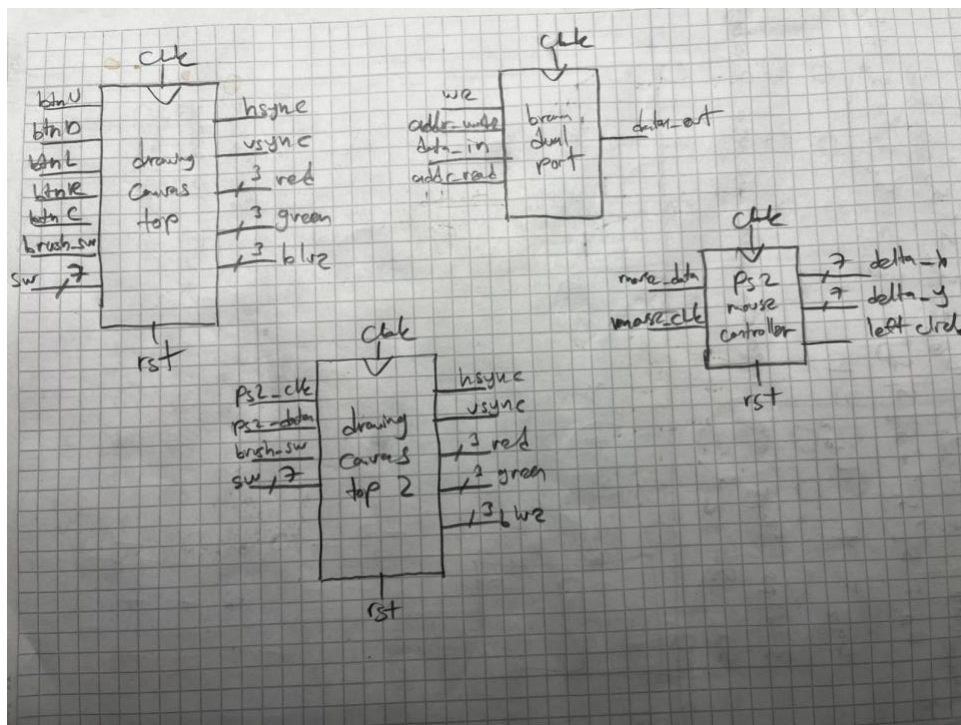 clk
btnU
btnD
btnL
btnR
btnC
brush_sw
sw 7
drawing
canvas
top
hsync
vsync
3 red
3 green
3 blue
rst
clk
we
addr_write
data_in
addr_read
bram
dual
port
data_out
clk
mouse_data
mouse_clk
ps2
mouse
controller
7 delta_x
7 delta_y
left click
rst
clk
ps2_clk
ps2_data
brush_sw
sw 7
drawing
canvas
top 2
hsync
vsync
3 red
green
3 blue
rst